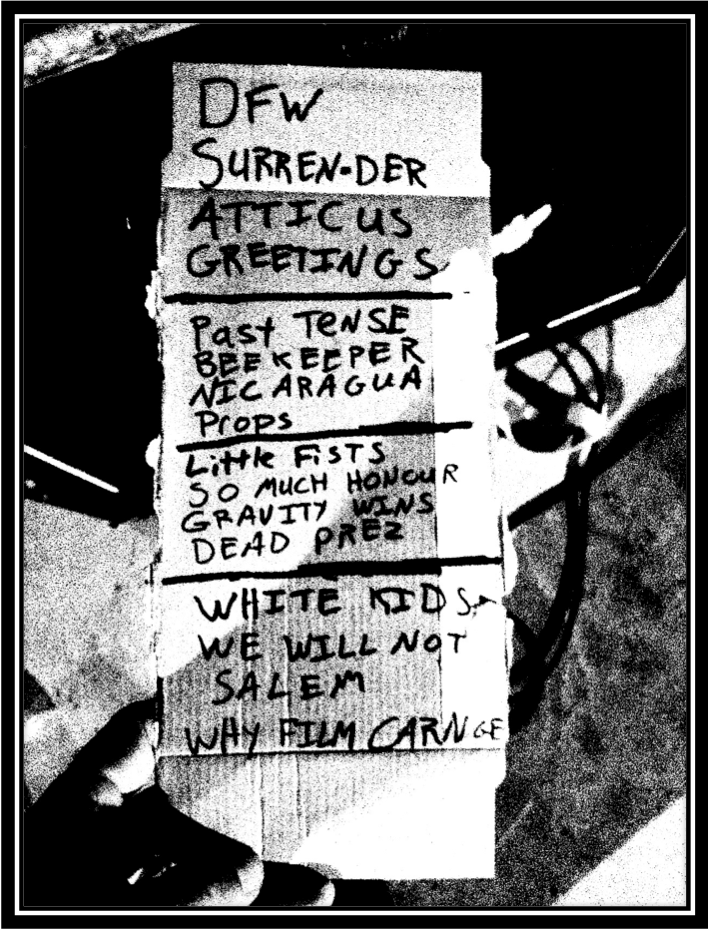 DFW
SURREN-DER
ATTICUS
GREETINGS
Past TENSE
BEEKEEPER
NICARAGUA
Props
Little FISTS
SO MUCH HONOUR
GRAVITY WINS
DEAD PREZ
WHITE KIDS
WE WILL NOT
SALEM
WHY FILM CARNGE